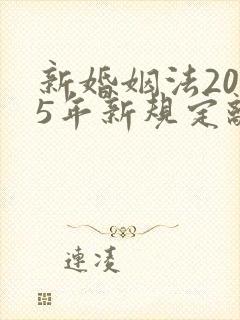 新婚姻法20
5年新规定
连凌